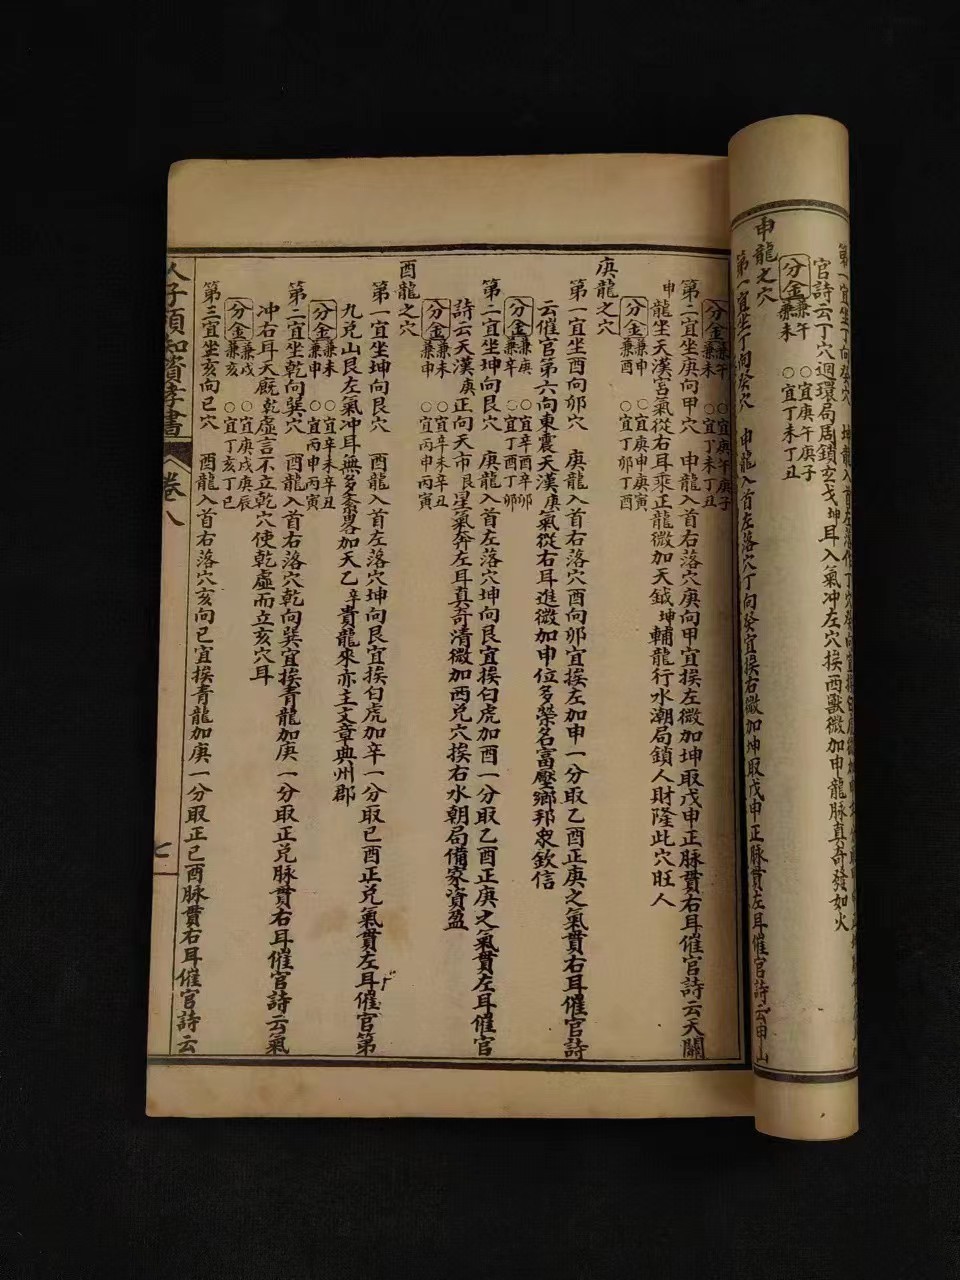 官詩云丁穴迴環局周鎖玄戈坤耳入氣冲左穴挨西獸微加申龍脉真奇發如火
分金兼午 ○宜庚午庚子
兼未 ○宜丁未丁丑
申龍之穴
第一宜坐丁向癸穴 申龍入首左落穴丁向癸宜挨右微加坤取戊申正脉貫左耳催官詩云申山
分金兼午 ○宜庚午庚子
兼未 ○宜丁未丁丑
第二宜坐庚向甲穴 申龍入首右落穴庚向甲宜挨左微加坤取戊申正脉貫右耳催官詩云天關
申龍坐天漢宮氣從右耳乘正龍微加天鉞坤輔龍行水潮局鎖人財隆此穴旺人
分金兼申 ○宜庚申庚寅
兼酉 ○宜丁卯丁酉
庚龍之穴
第一宜坐酉向卯穴 庚龍入首右落穴酉向卯宜挨左加申一分取乙酉正庚之氣貫右耳催官詩
云催官第六向東震天漢庚氣從右耳進微加申位多榮名富壓鄉邦衆欽信
分金兼庚 ○宜辛酉辛卯
兼辛 ○宜丁酉丁卯
第二宜坐坤向艮穴 庚龍入首左落穴坤向艮宜挨白虎加酉一分取乙酉正庚之氣貫左耳催官
詩云天漢庚正向天市艮星氣奔左耳真奇清微加西兌穴挨右水朝局備家資盈
分金兼未 ○宜辛未辛丑
兼申 ○宜丙申丙寅
酉龍之穴
第一宜坐坤向艮穴 酉龍入首左落穴坤向艮宜挨白虎加辛一分取已酉正兌氣貫左耳催官第
九兌山艮左氣冲耳無多畧加天乙辛貴龍來亦主文章典州郡
分金兼未 ○宜辛未辛丑
兼申 ○宜丙申丙寅
第二宜坐乾向巽穴 酉龍入首右落穴乾向巽宜挨青龍加庚一分取正兌脉貫右耳催官詩云氣
冲右耳天厩乾虛言不立乾穴使乾虛而立亥穴耳
分金兼戌 ○宜庚戌庚辰
兼亥 ○宜丁亥丁巳
第三宜坐亥向巳穴 酉龍入首右落穴亥向巳宜挨青龍加庚一分取正己酉脉貫右耳催官詩云
人子須知資孝書 卷八 七